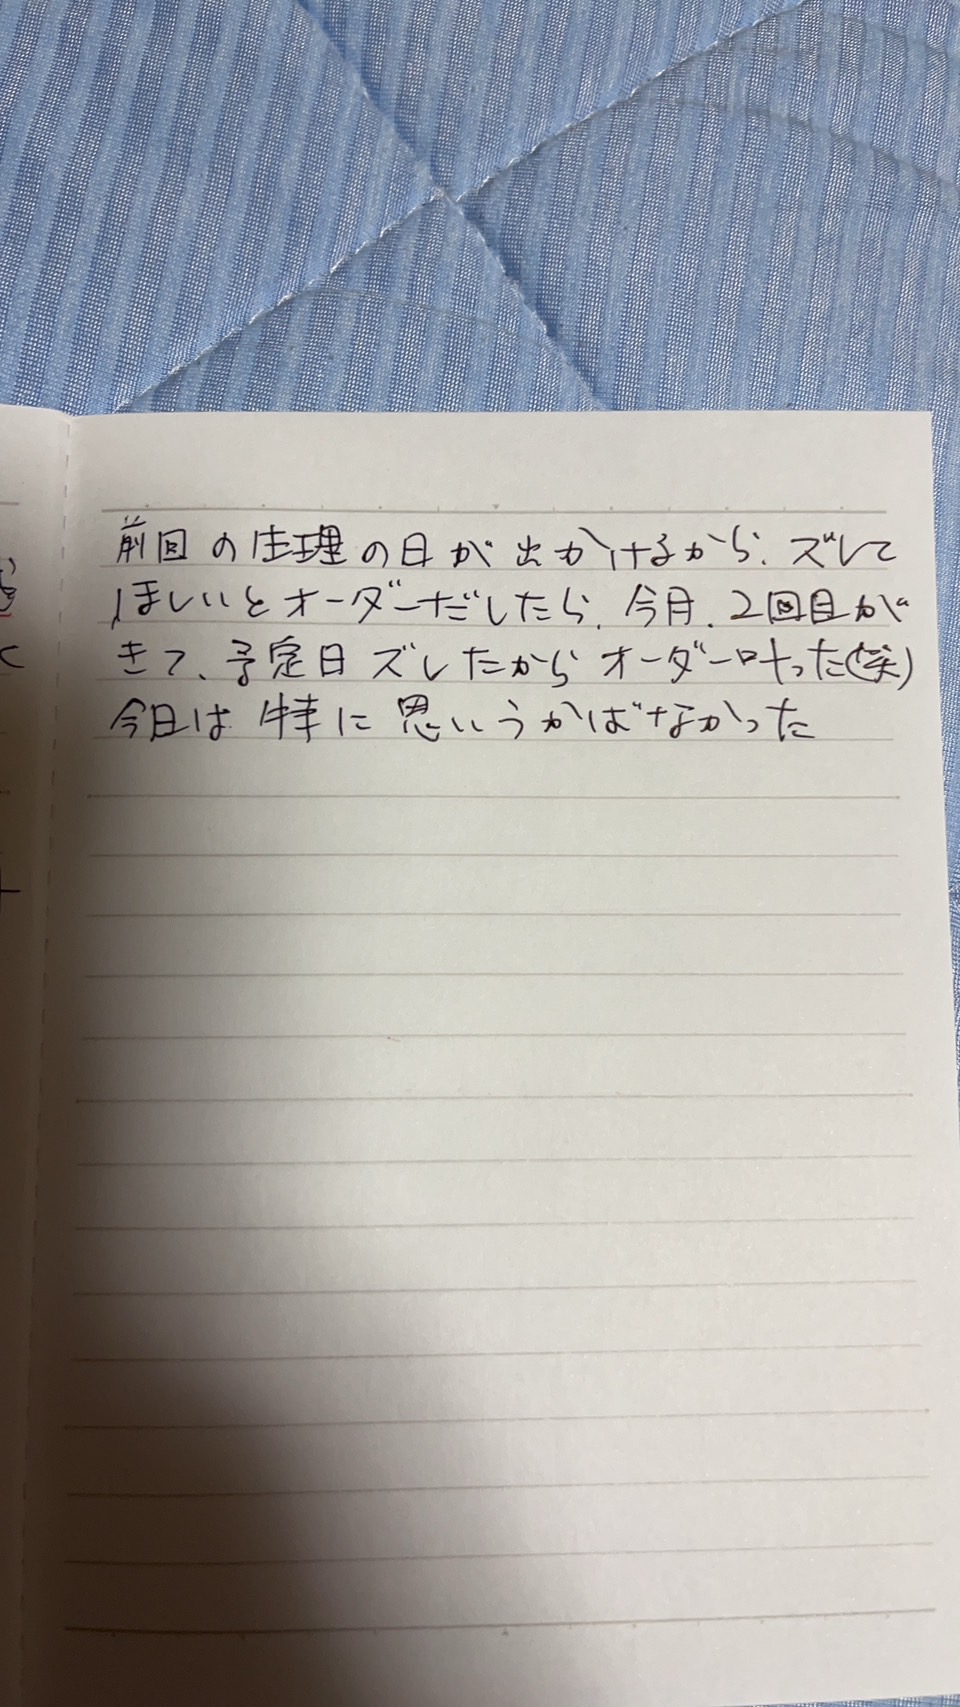 前回の生理の日が出かけるから、ズして
ほしいとオーダーだしたら、今月、2回目が
きて、予定日ズしたからオーダー叶った(笑)
今日は特に思いうかばなかった